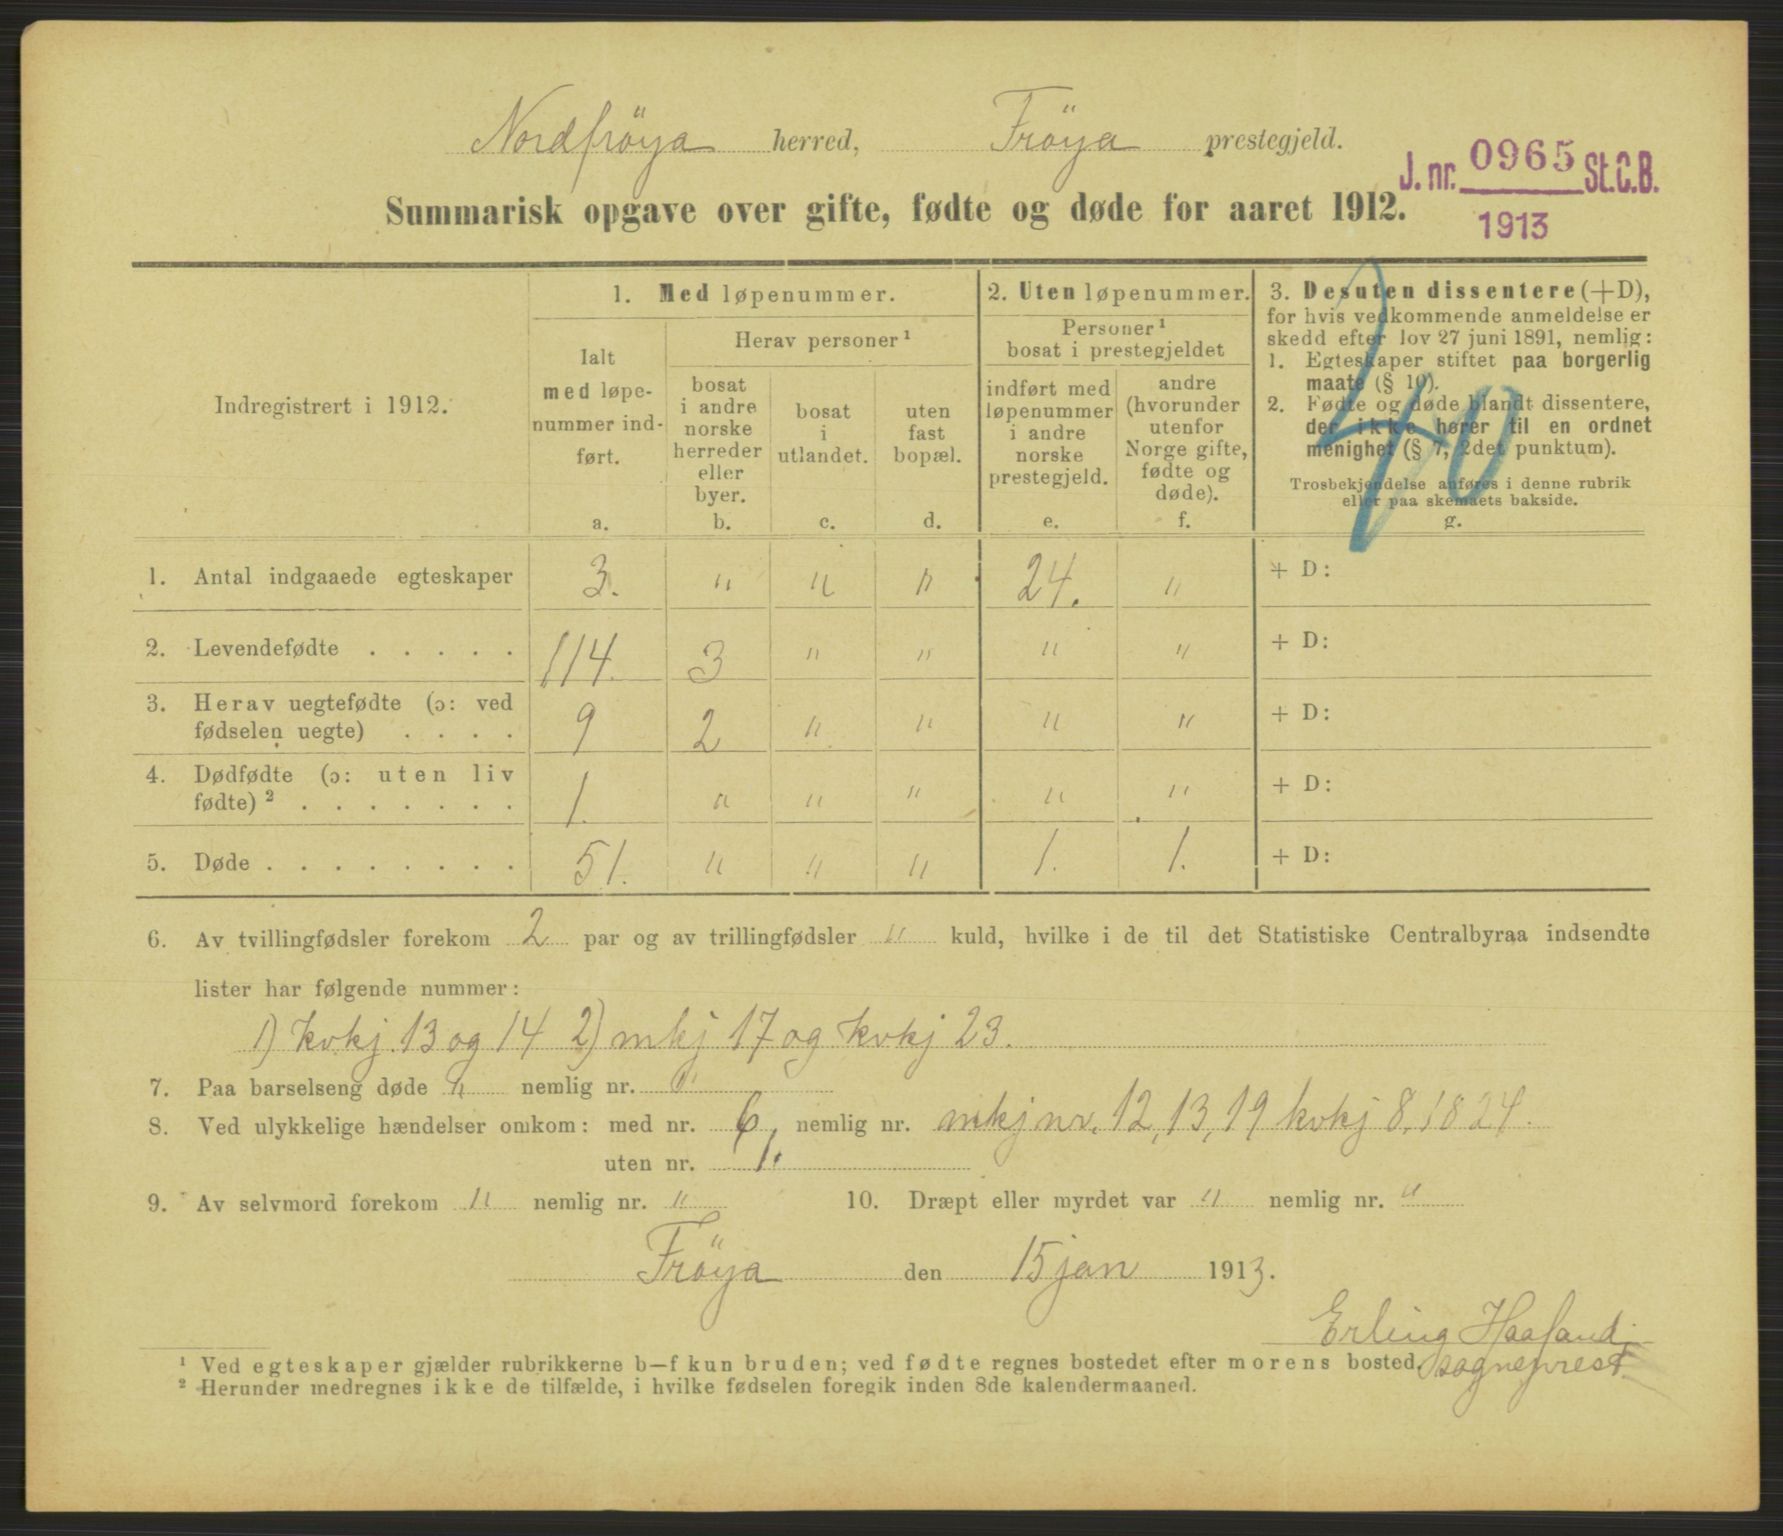 Nordfröya herred, Fröya prestegjeld.
J. nr. 0965 St.C.B.
1913
Summarisk opgave over gifte, fødte og døde for aaret 1912.
Indregistrert i 1912.
1. Med løpenummer.
Ialt
med løpe-
nummer ind-
ført.
a.
Herav personer ¹
bosat
i andre
norske
herreder
eller
byer.
b.
bosat
i
utlandet.
c.
uten
fast
bopæl.
d.
2. Uten løpenummer.
Personer ¹
bosat i prestegjeldet
indført med
løpenummer
i andre
norske
prestegjeld.
e.
andre
(hvorunder
utenfor
Norge gifte,
fødte og
døde).
f.
3. Desuten dissentere (+D),
for hvis vedkommende anmeldelse er
skedd efter lov 27 juni 1891, nemlig:
1. Egteskaper stiftet paa borgerlig
maate (§ 10).
2. Fødte og døde blandt dissentere,
der ikke hører til en ordnet
menighet (§ 7, 2det punktum).
Trosbekjendelse anføres i denne rubrik
eller paa skemaets bakside.
g.
1. Antal indgaaede egteskaper 3. " " " 24. " + D:
2. Levendefødte . . . . . 114. 3 " " " " + D:
3. Herav uegtefødte (ɔ: ved
fødselen uegte) . . . . 9 2 " " " " + D:
4. Dødfødte (ɔ: uten liv
fødte) ² . . . . . . . 1. " " " " " + D:
5. Døde . . . . . . . . 51. " " " 1. 1. + D:
6. Av tvillingfødsler forekom 2 par og av trillingfødsler " kuld, hvilke i de til det Statistiske Centralbyraa indsendte
lister har følgende nummer:
1) kvkj. 13 og 14 2) mkj 17 og kvkj 23.
7. Paa barselseng døde " nemlig nr. "
8. Ved ulykkelige hændelser omkom: med nr. 6, nemlig nr. mkj nr. 12, 13, 19 kvkj 8, 18 24.
uten nr. 1.
9. Av selvmord forekom " nemlig nr. " 10. Dræpt eller myrdet var " nemlig nr. "
Fröya den 15 jan 1913.
Erling Haaland
sogneprest
¹ Ved egteskaper gjælder rubrikkerne b—f kun bruden; ved fødte regnes bostedet efter morens bosted.
² Herunder medregnes ikke de tilfælde, i hvilke fødselen foregik inden 8de kalendermaaned.